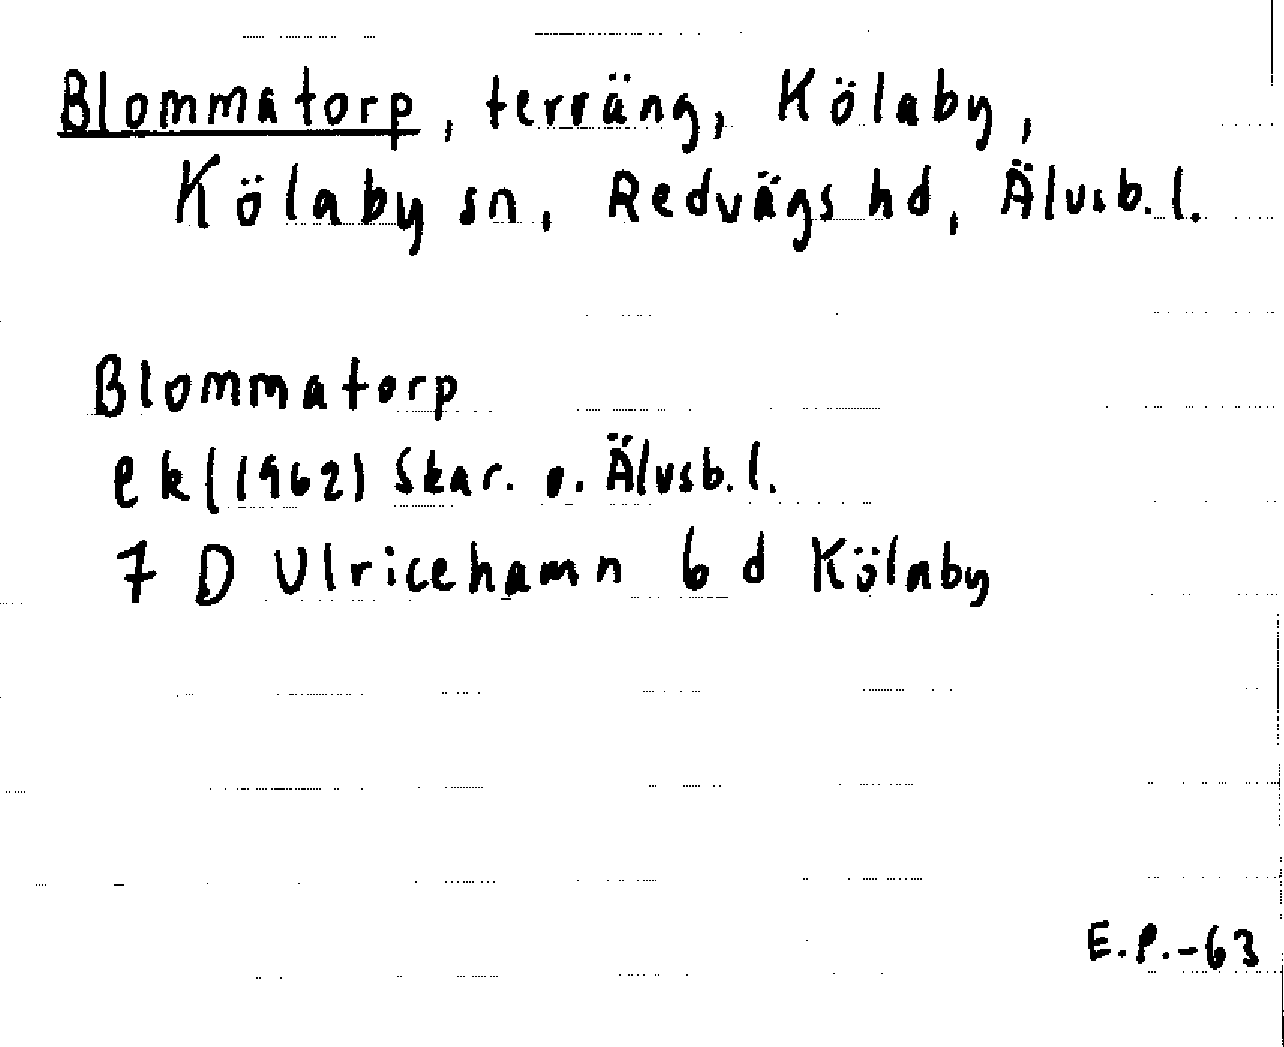 Blommatorp, terräng, Kölaby,
Kölaby sn, Redvägs hd, Älvsb.l.
Blommatorp
ek (1962) Skar. o. Älvsb.l.
7 D Ulricehamn 6 d Kölaby
E.P.-63